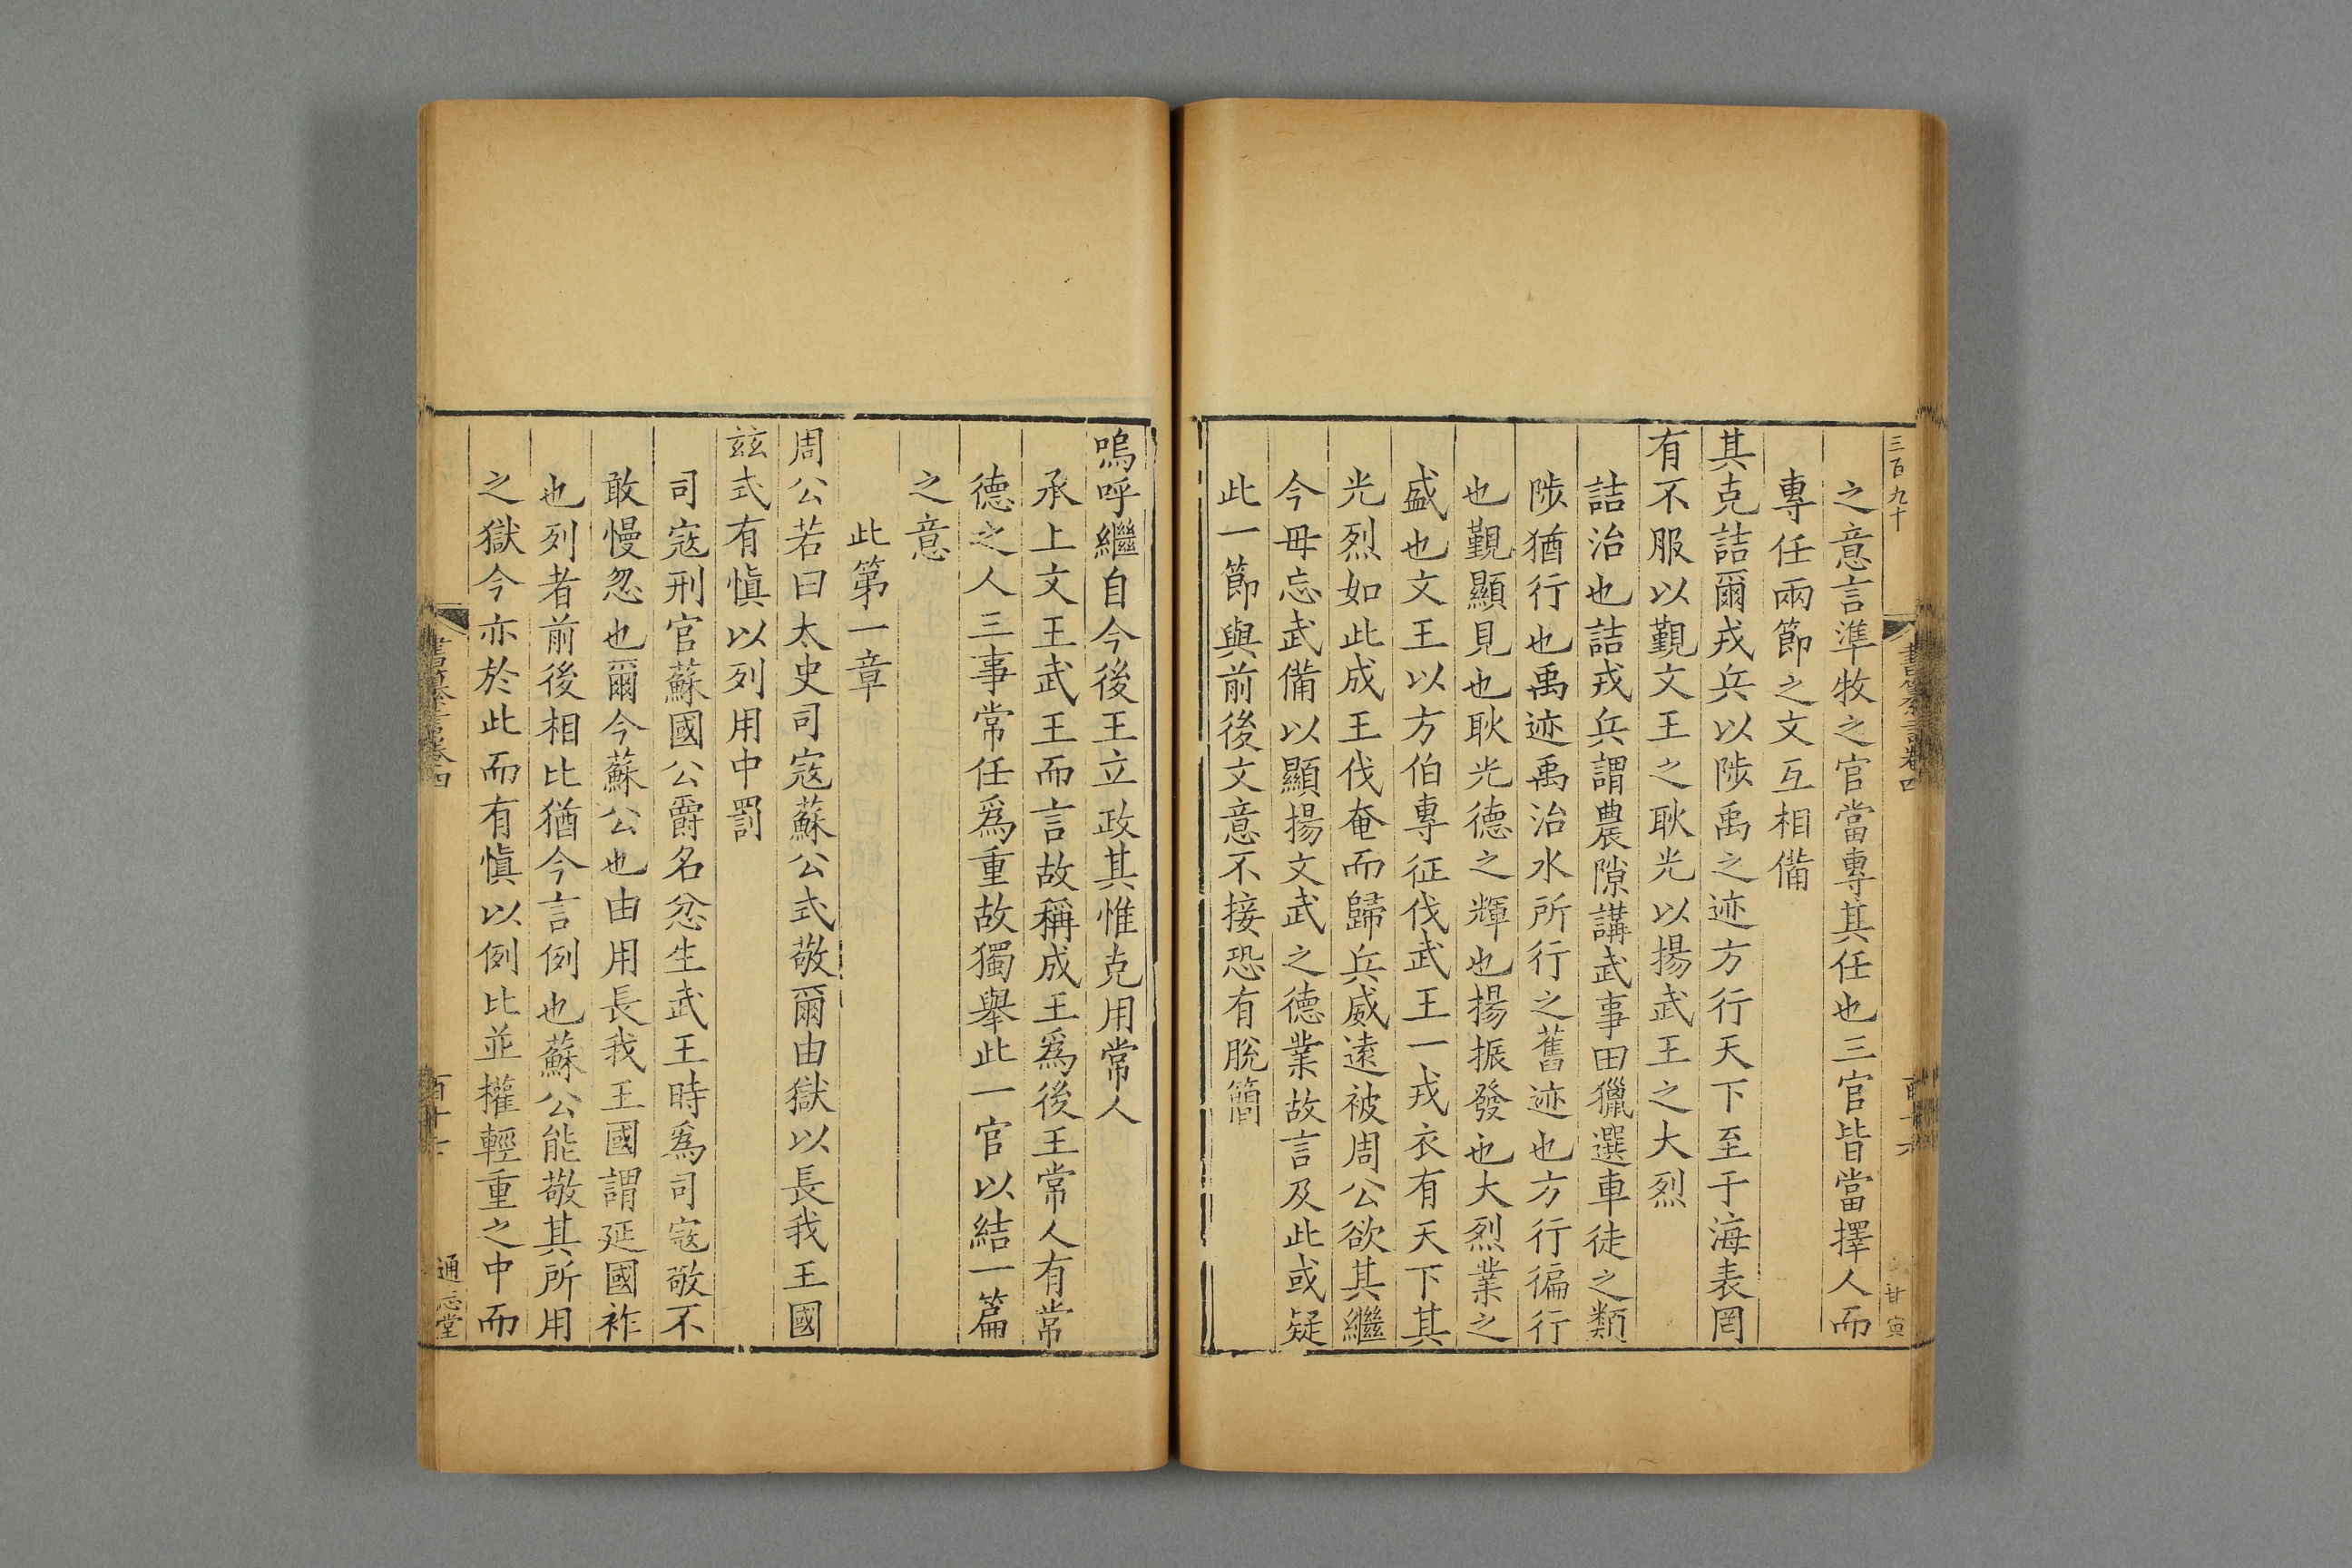 三百九十
之意言準牧之官當專其任也三官皆當擇人而
專任兩節之文互相備
其克詰爾戎兵以陟禹之迹方行天下至于海表罔
有不服以覲文王之耿光以揚武王之大烈
詰治也詰戎兵謂農隙講武事田獵選車徒之類
陟猶行也禹迹禹治水所行之舊迹也方行徧行
也覲顯見也耿光德之輝也揚振發也大烈業之
盛也文王以方伯專征伐武王一戎衣有天下其
光烈如此成王伐奄而歸兵威遠被周公欲其繼
今毋忘武備以顯揚文武之德業故言及此或疑
此一節與前後文意不接恐有脫簡
嗚呼繼自今後王立政其惟克用常人
承上文王武王而言故稱成王爲後王常人有常
德之人三事常任爲重故獨舉此一官以結一篇
之意
此第一章
周公若曰太史司寇蘇公式敬爾由獄以長我王國
茲式有愼以列用中罰
司寇刑官蘇國公爵名忿生武王時爲司寇敬不
敢慢忽也爾今蘇公也由用長我王國謂延國祚
也列者前後相比猶今言例也蘇公能敬其所用
之獄今亦於此而有愼以例比並權輕重之中而
書纂言卷四
通志堂